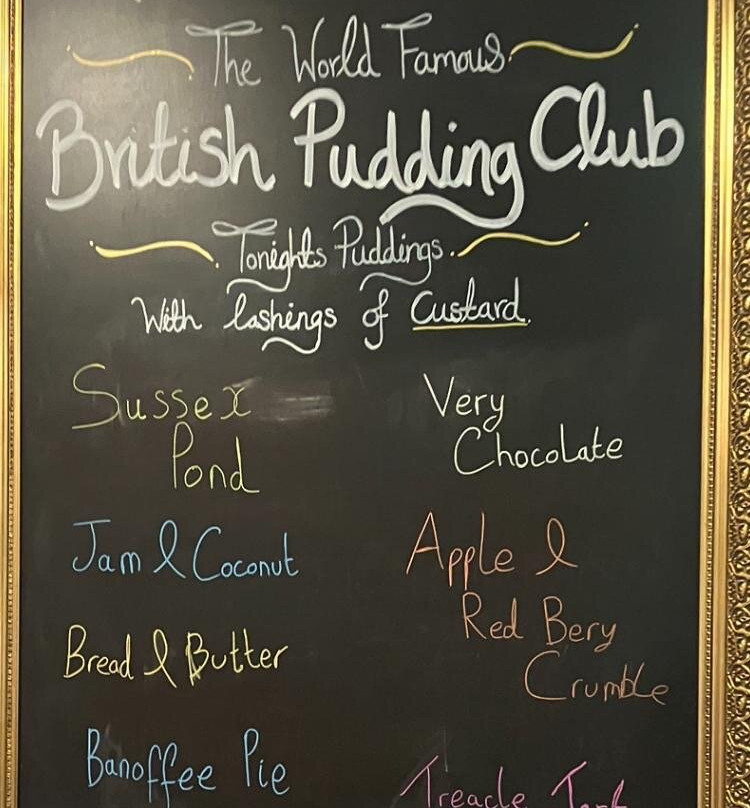 The World Famous
British Pudding Club
Tonights Puddings.
With lashings of Custard.
Sussex
Pond
Jam & Coconut
Bread & Butter
Banoffee Pie
Very
Chocolate
Apple &
Red Bery
Crumble
Treacle